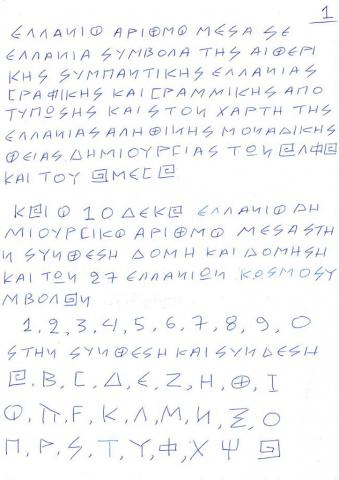 1
ΕΛΛΑΝΙΟ ΑΡΙΘΜΟ ΜΕΣΑ ΣΕ
ΕΛΛΑΝΙΑ ΣΥΜΒΟΛΑ ΤΗΣ ΑΙΘΕΡΙ
ΚΗΣ ΣΥΜΠΑΝΤΙΚΗΣ ΕΛΛΑΝΙΑΣ
ΓΡΑΦΙΚΗΣ ΚΑΙ ΓΡΑΜΜΙΚΗΣ ΑΠΟ
ΤΥΠΩΣΗΣ ΚΑΙ ΣΤΟΝ ΧΑΡΤΗ ΤΗΣ
ΕΛΛΑΝΙΑΣ ΑΛΗΘΙΝΗΣ ΜΟΝΑΔΙΚΗΣ
ΘΕΙΑΣ ΔΗΜΙΟΥΡΓΙΑΣ ΤΩΝ ΑΛΦΑ
ΚΑΙ ΤΟΥ ΩΜΕΓΑ
ΚΑΙ Ο 10 ΔΕΚΑ ΕΛΛΑΝΙΟ ΔΗ
ΜΙΟΥΡΓΙΚΟ ΑΡΙΘΜΟ ΜΕΣΑ ΣΤΗ
Ν ΣΥΝΘΕΣΗ ΔΟΜΗ ΚΑΙ ΔΟΜΗΣΗ
ΚΑΙ ΤΩΝ 27 ΕΛΛΑΝΙΩΝ ΚΟΣΜΟΣΥ
ΜΒΟΛΩΝ
1, 2, 3, 4, 5, 6, 7, 8, 9, 0
ΣΤΗΝ ΣΥΝΘΕΣΗ ΚΑΙ ΣΥΝΔΕΣΗ
Α, Β, Γ, Δ, Ε, Ζ, Η, Θ, Ι
Ϙ, Ϡ, F, Κ, Λ, Μ, Ν, Ξ, Ο
Π, Ρ, Σ, Τ, Υ, Φ, Χ Ψ Ω